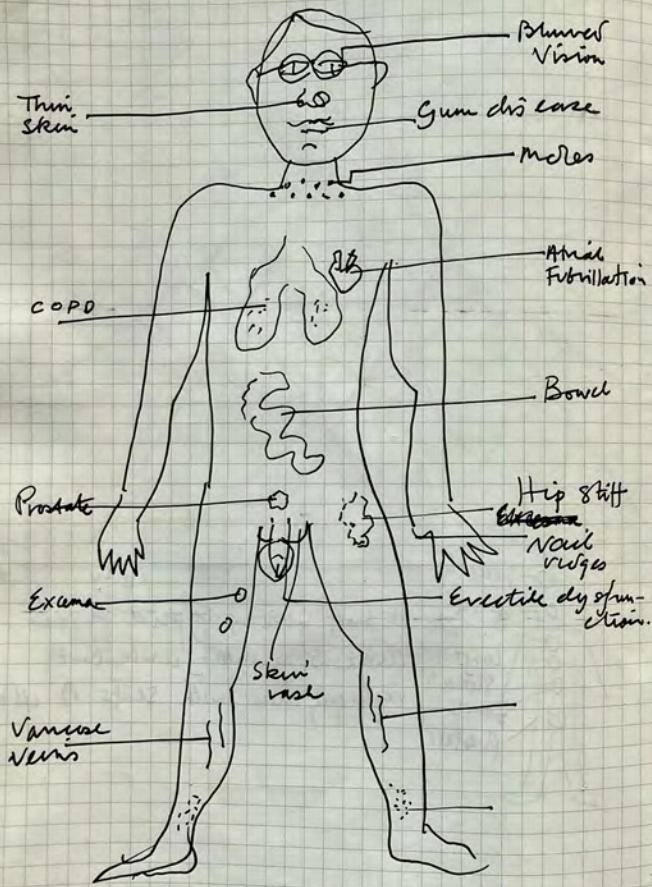 Blurred
Vision
Thin
Skin
Gum disease
Moles
Atrial
Fibrillation
COPD
Bowel
Prostate
Hip stiff
Nail
ridges
Exema
Erectile dysfun-
ction.
Skin
rash
Varicose
Veins